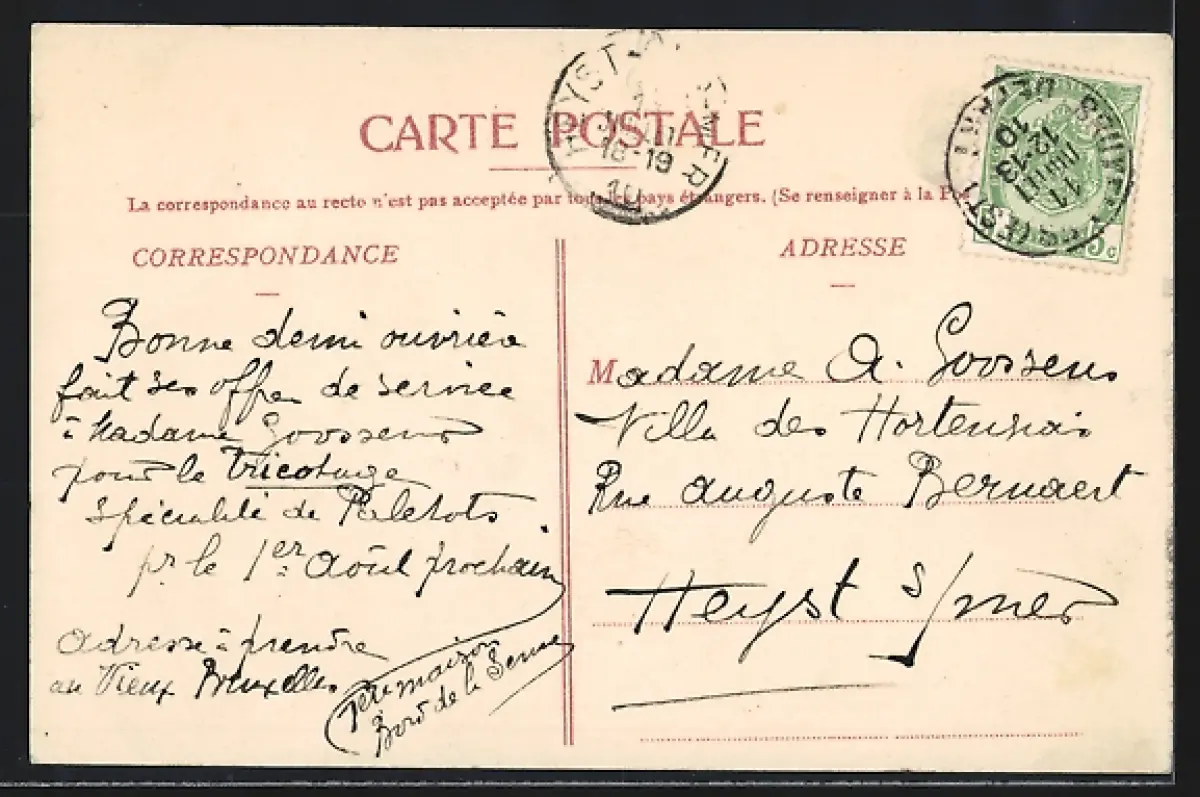 CARTE POSTALE
La correspondance au recto n'est pas acceptée par tous les pays étrangers. (Se renseigner à la P
CORRESPONDANCE
Bonne demi ouvrière
fait ses offres de service
à Madame Goossens
pour le tricotage
Spécialité de Paletots
pr le 1er Août prochain
adresse à prendre
au Vieux Bruxelles
1ère maison
Bord de la Senne
ADRESSE
Madame A. Goossens
Villa des Hortensias
Rue Auguste Bernaert
Heyst s/mer
HEYST
MER
18-19
BRUXELLES
12-13
11
10
5c